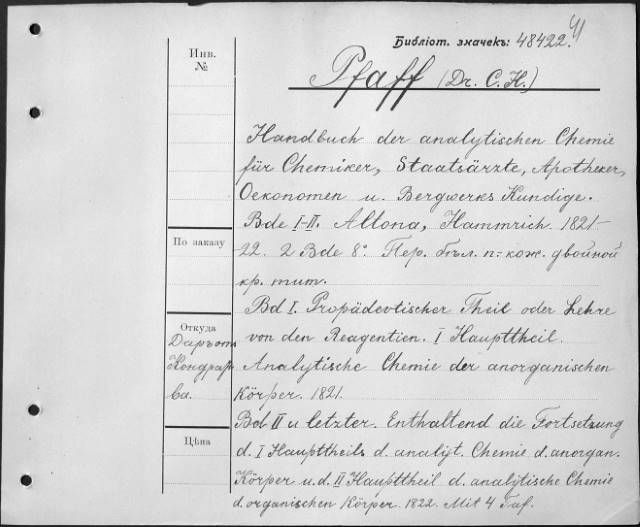 Библіот. значекъ: 48422.
Инв.
№
Pfaff (Dr. C. H.)
Handbuch der analytischen Chemie
für Chemiker, Staatsärzte, Apotheker,
Oekonomen u. Bergwerks Kundige.
Bde I-II. Altona, Hammrich. 1821-
22. 2 Bde 8°. Пер. бѣл. п-кож. двойной
кр. тит.
По заказу
Bd I. Propädevtischer Theil oder Lehre
von den Reagentien. I Haupttheil.
Analytische Chemie der anorganischen
Körper. 1821.
Откуда
Даръ отъ
Кондрать
ва.
Bd II u letzter. Enthaltend die Fortsetzung
d. I Haupttheils d. analyt. Chemie d. anorgan.
Körper u. d. II Haupttheil d. analytische Chemie
d. organischen Körper. 1822. Mit 4 Taf.
Цѣна